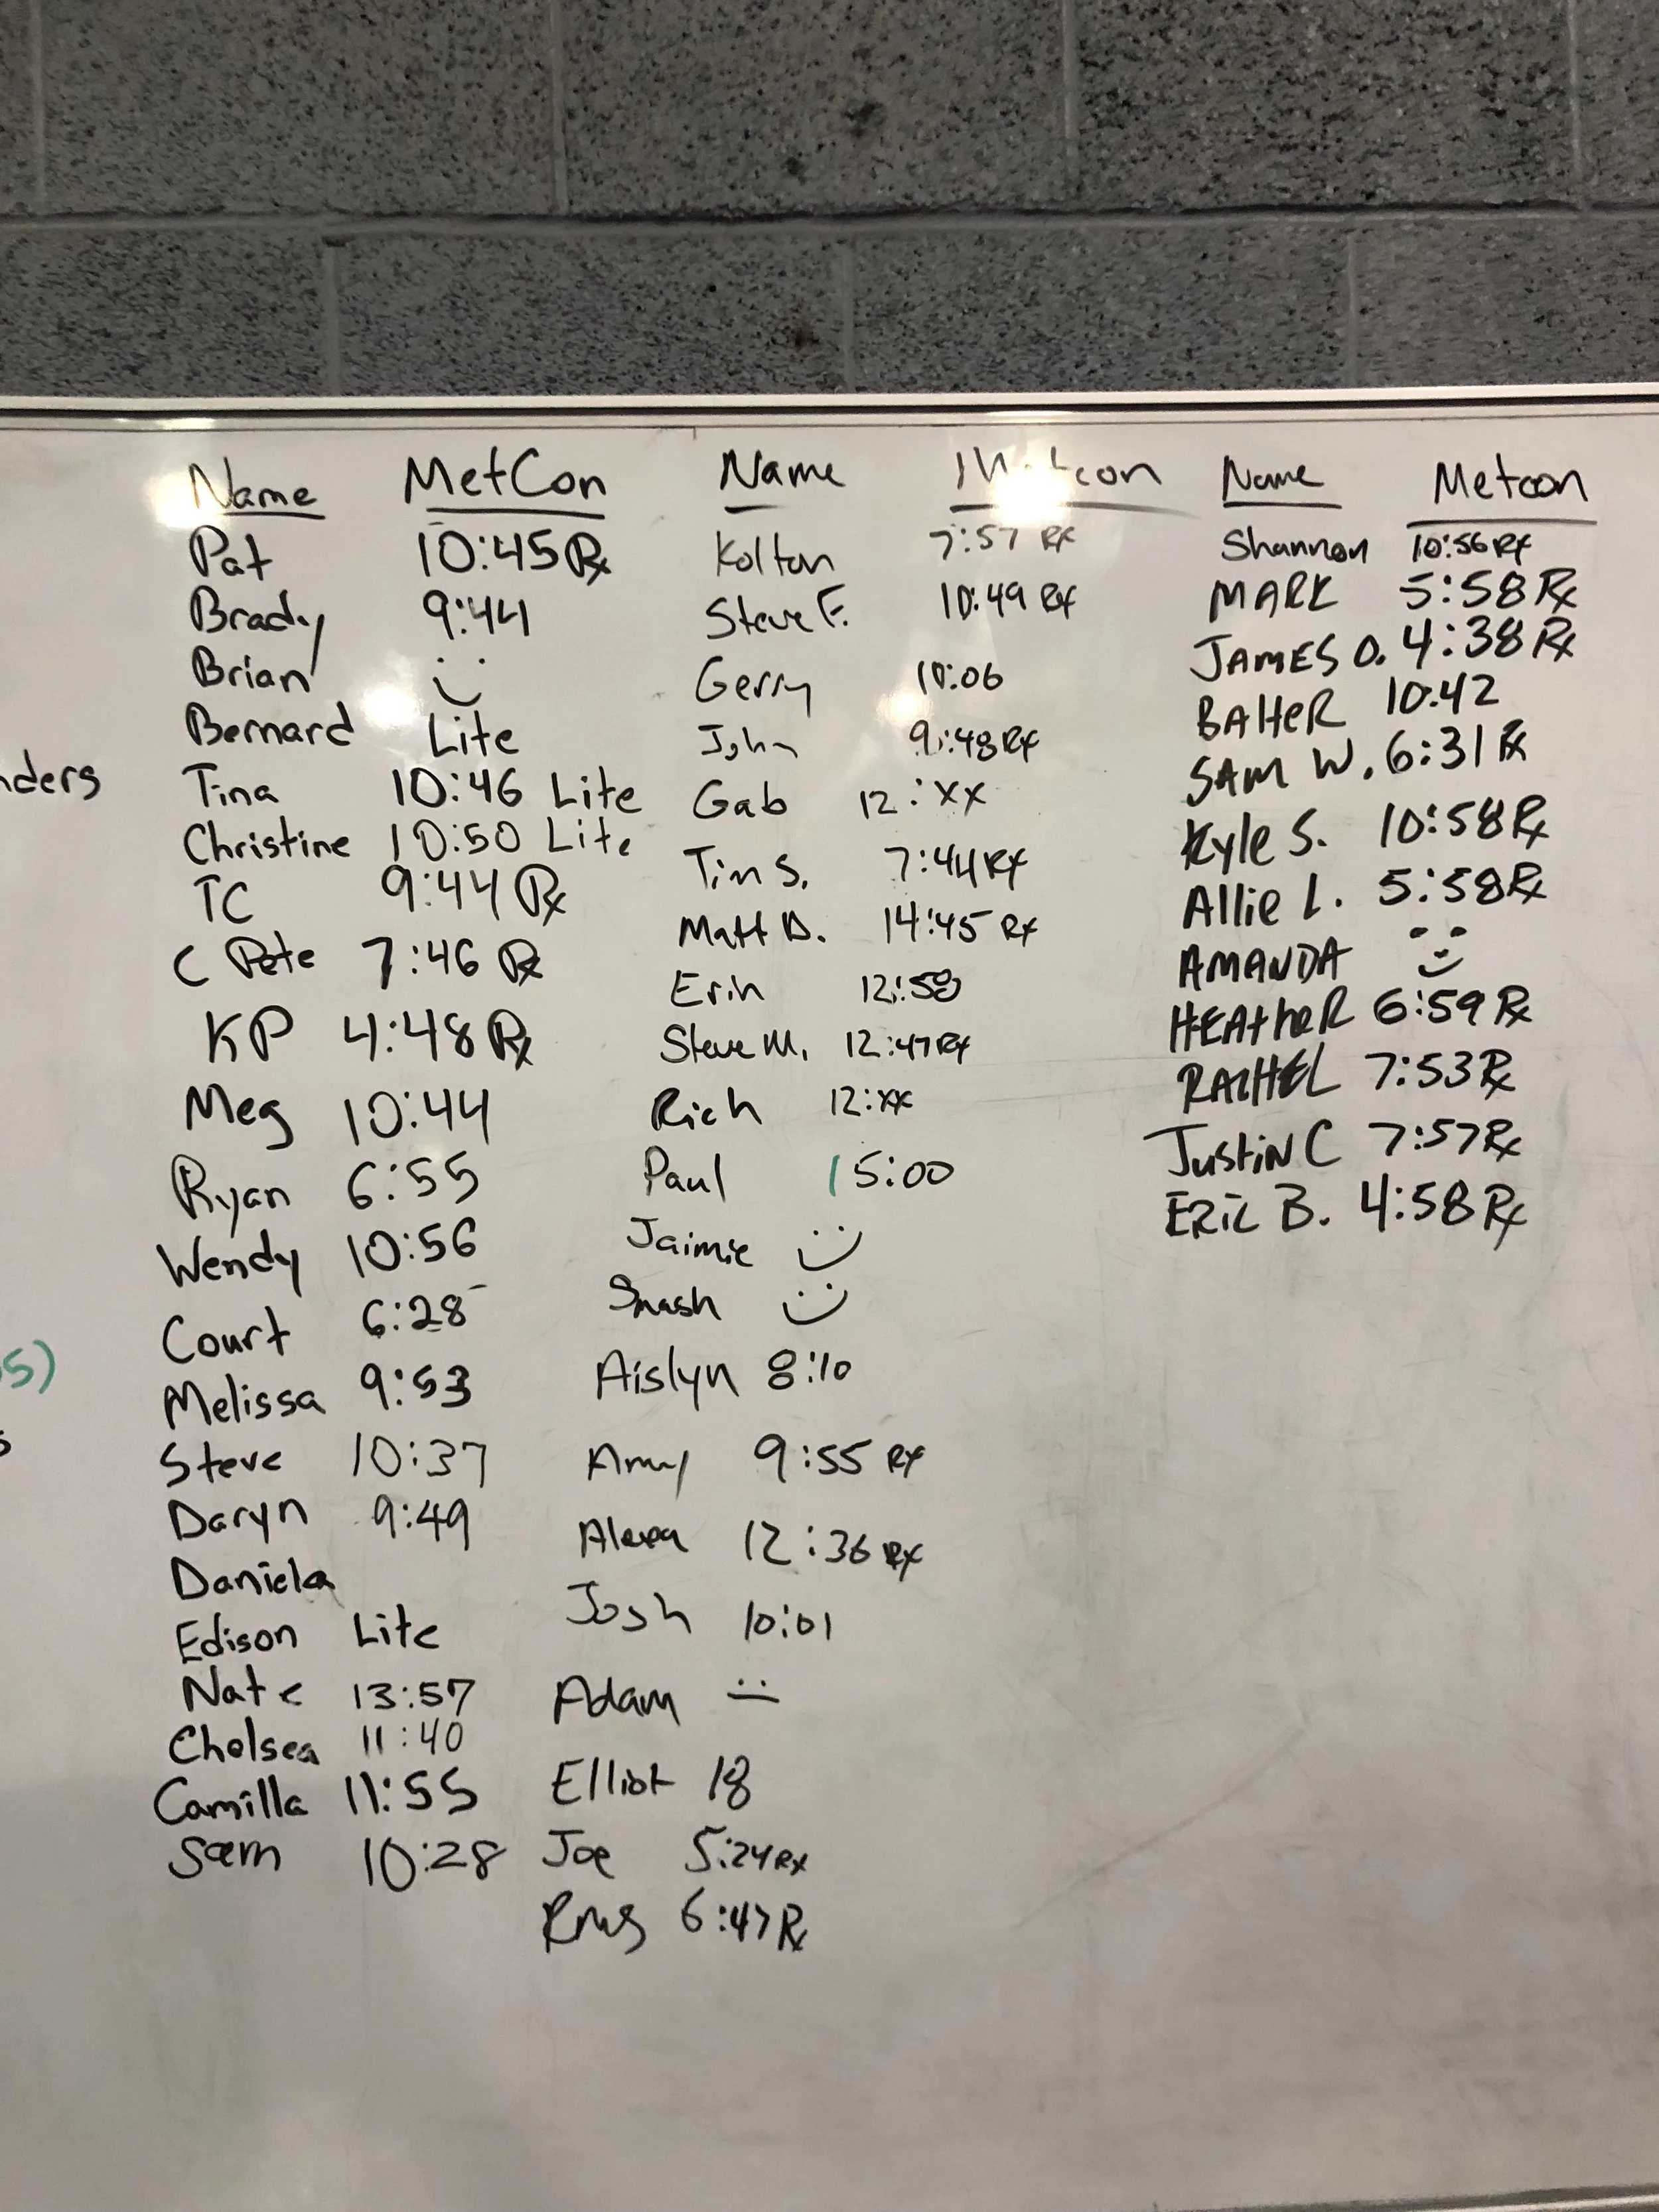 Name MetCon
Pat 10:45 Rx
Brady 9:44
Brian :)
Bernard Lite
Tina 10:46 Lite
Christine 10:50 Lite
TC 9:44 Rx
C Pete 7:46 Rx
KP 4:48 Rx
Meg 10:44
Ryan 6:55
Wendy 10:56
Court 6:28
Melissa 9:53
Steve 10:37
Daryn 9:49
Daniela
Edison Lite
Nate 13:57
Chelsea 11:40
Camilla 11:55
Sam 10:28
Name Metcon
Kolton 7:57 Rx
Steve F. 10:49 Rx
Gerry 10:06
John 9:48 Rx
Gab 12:XX
Tim S. 7:44 Rx
Matt D. 14:45 Rx
Erin 12:58
Steve M. 12:47 Rx
Rich 12:XX
Paul 15:00
Jaimie :)
Smash :)
Aislyn 8:10
Amy 9:55 Rx
Alexa 12:36 Rx
Josh 10:01
Adam :|
Elliot 18
Joe 5:24 Rx
6:47 Rx
Name Metcon
Shannon 10:56 Rx
MARK 5:58 Rx
JAMES O. 4:38 Rx
10:42
SAM W. 6:31 Rx
Kyle S. 10:58 Rx
Allie L. 5:58 Rx
AMANDA :)
HEATHER 6:59 Rx
RACHEL 7:53 Rx
Justin C 7:57 Rx
ERIC B. 4:58 Rx
nders
5)
s